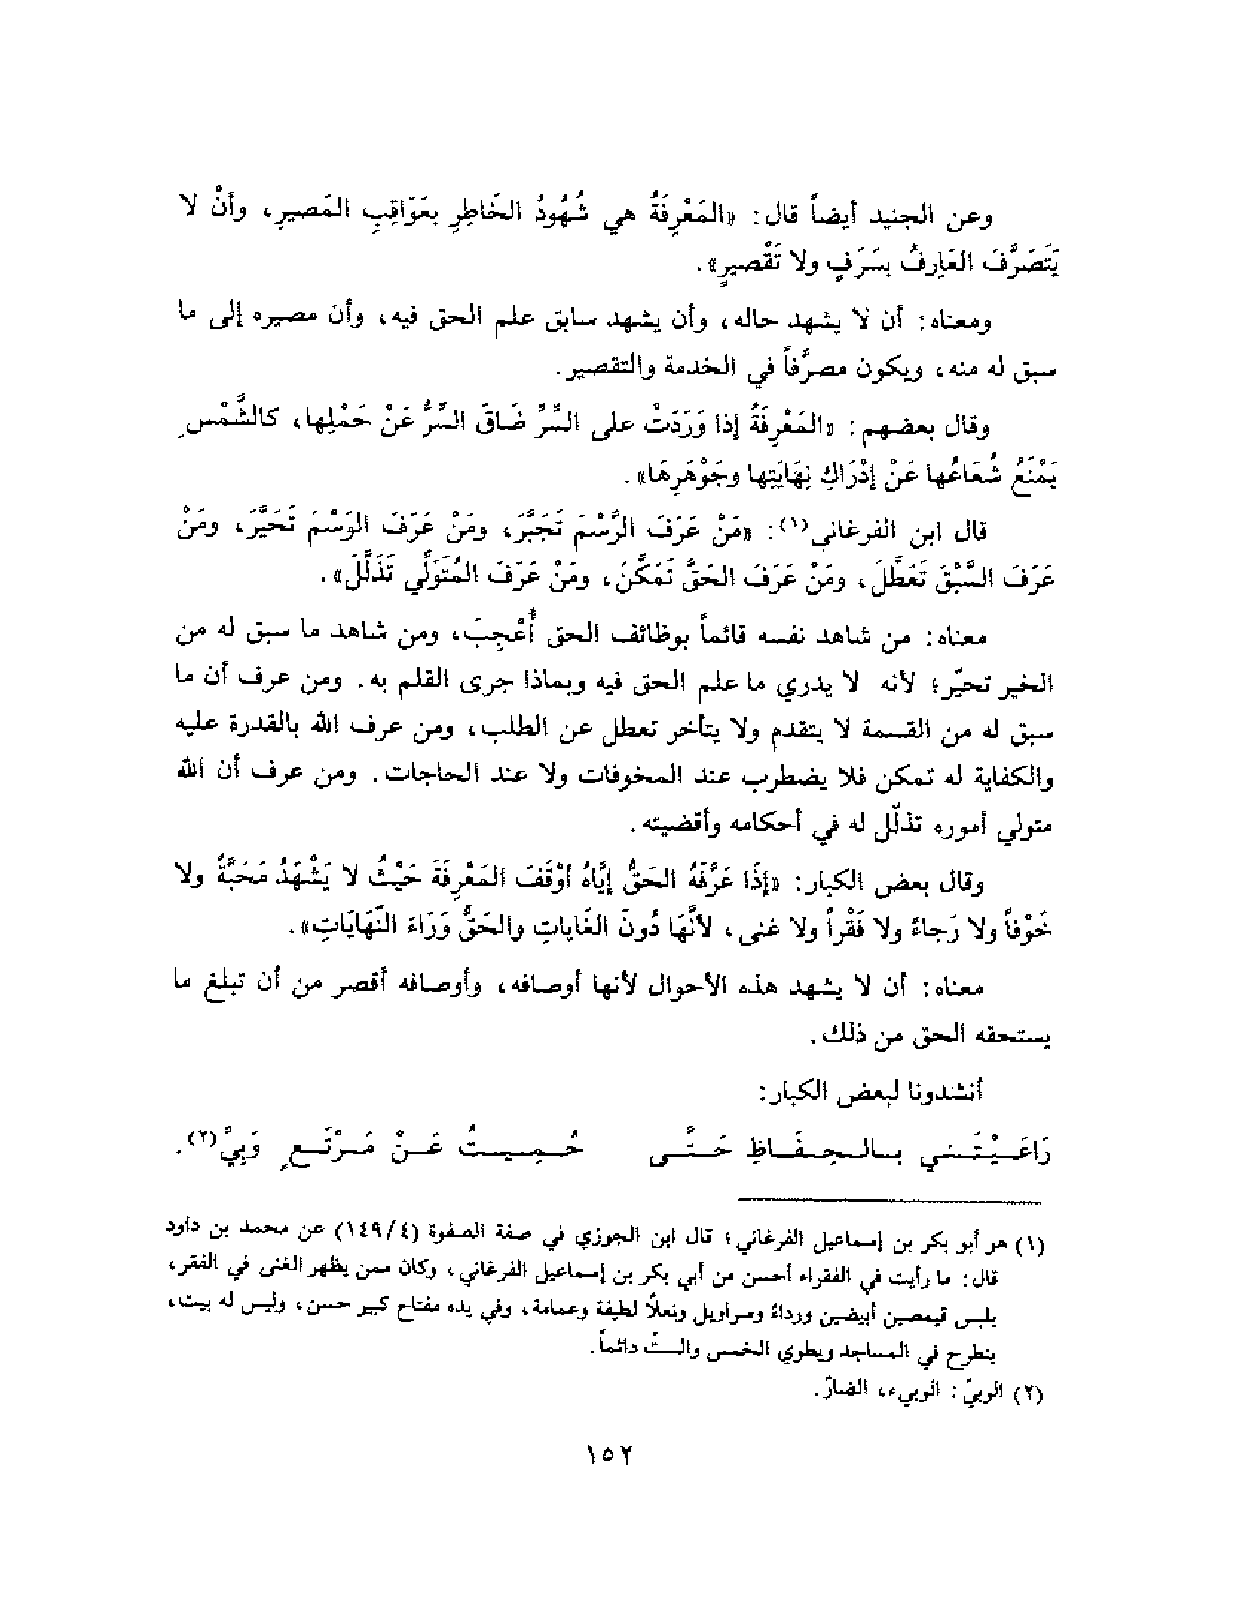 وعن الجنيد أيضاً قال: «المَعْرِفَةُ هي شُهُودُ الخَاطِرِ بعَوَاقِبِ المَصيرِ، وأنْ لا
يَتَصَرَّفَ العَارِفُ بسَرَفٍ ولا تَقْصيرٍ».
ومعناه: أن لا يشهد حاله، وأن يشهد سابق علم الحق فيه، وأن مصيره إلى ما
سبق له منه، ويكون مصرَّفاً في الخدمة والتقصير.
وقال بعضهم: «المَعْرِفَةُ إذا وَرَدَتْ على السِّرِّ ضَاقَ السِّرُّ عَنْ حَمْلِها، كالشَّمْسِ
يَمْنَعُ شُعَاعُها عَنْ إدْرَاكِ نِهَايَتِها وجَوْهَرِهَا».
قال ابن الفرغاني(١): «مَنْ عَرَفَ الرَّسْمَ تَجَبَّرَ، ومَنْ عَرَفَ الوَسْمَ تَحَيَّرَ، ومَنْ
عَرَفَ السَّبْقَ تَعَطَّلَ، ومَنْ عَرَفَ الحَقَّ تَمَكَّنَ، ومَنْ عَرَفَ المُتَوَلِّي تَذَلَّلَ».
معناه: من شاهد نفسه قائماً بوظائف الحق أُعْجِبَ، ومن شاهد ما سبق له من
الخير تحيّر؛ لأنه لا يدري ما علم الحق فيه وبماذا جرى القلم به. ومن عرف أن ما
سبق له من القسمة لا يتقدم ولا يتأخر تعطل عن الطلب، ومن عرف الله بالقدرة عليه
والكفاية له تمكن فلا يضطرب عند المخوفات ولا عند الحاجات. ومن عرف أن الله
متولي أموره تذلّل له في أحكامه وأقضيته.
وقال بعض الكبار: «إذَا عَرَّفَهُ الحَقُّ إيَّاهُ أوْقَفَ المَعْرِفَةَ حَيْثُ لا يَشْهَدُ مَحَبَّةً ولا
خَوْفاً ولا رَجاءً ولا فَقْراً ولا غنى، لأنَّهَا دُونَ الغَاياتِ والحَقُّ وَرَاءَ النِّهَايَاتِ».
معناه: أن لا يشهد هذه الأحوال لأنها أوصافه، وأوصافه أقصر من أن تبلغ ما
يستحقه الحق من ذلك.
أنشدونا لبعض الكبار:
رَاعَيْتَني بالحِفَاظِ حَتَّى حُمِيتُ عَنْ مَرْتَعٍ وَبِيِّ(٢).
(١) هر أبو بكر بن إسماعيل الفرغاني؛ قال ابن الجوزي في صفة الصفوة (١٤٩/٤) عن محمد بن داود
قال: ما رأيت في الفقراء أحسن من أبي بكر بن إسماعيل الفرغاني، وكان ممن يظهر الغنى في الفقر،
يلبس قيمصين أبيضين ورداءً وسراويل ونعلاً لطيفة وعمامة، وفي يده مفتاح كبير حسن، وليس له بيت،
ينطرح في المساجد ويطوي الخمس والستّ دائماً.
(٢) الوبيّ: الوبيء، الضارّ.
١٥٢